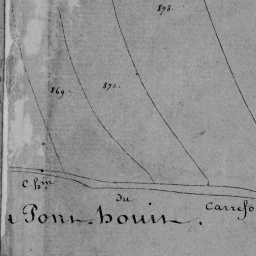 873.
869.
871.
Ch.in
du
Carrefo
Pont-houin.